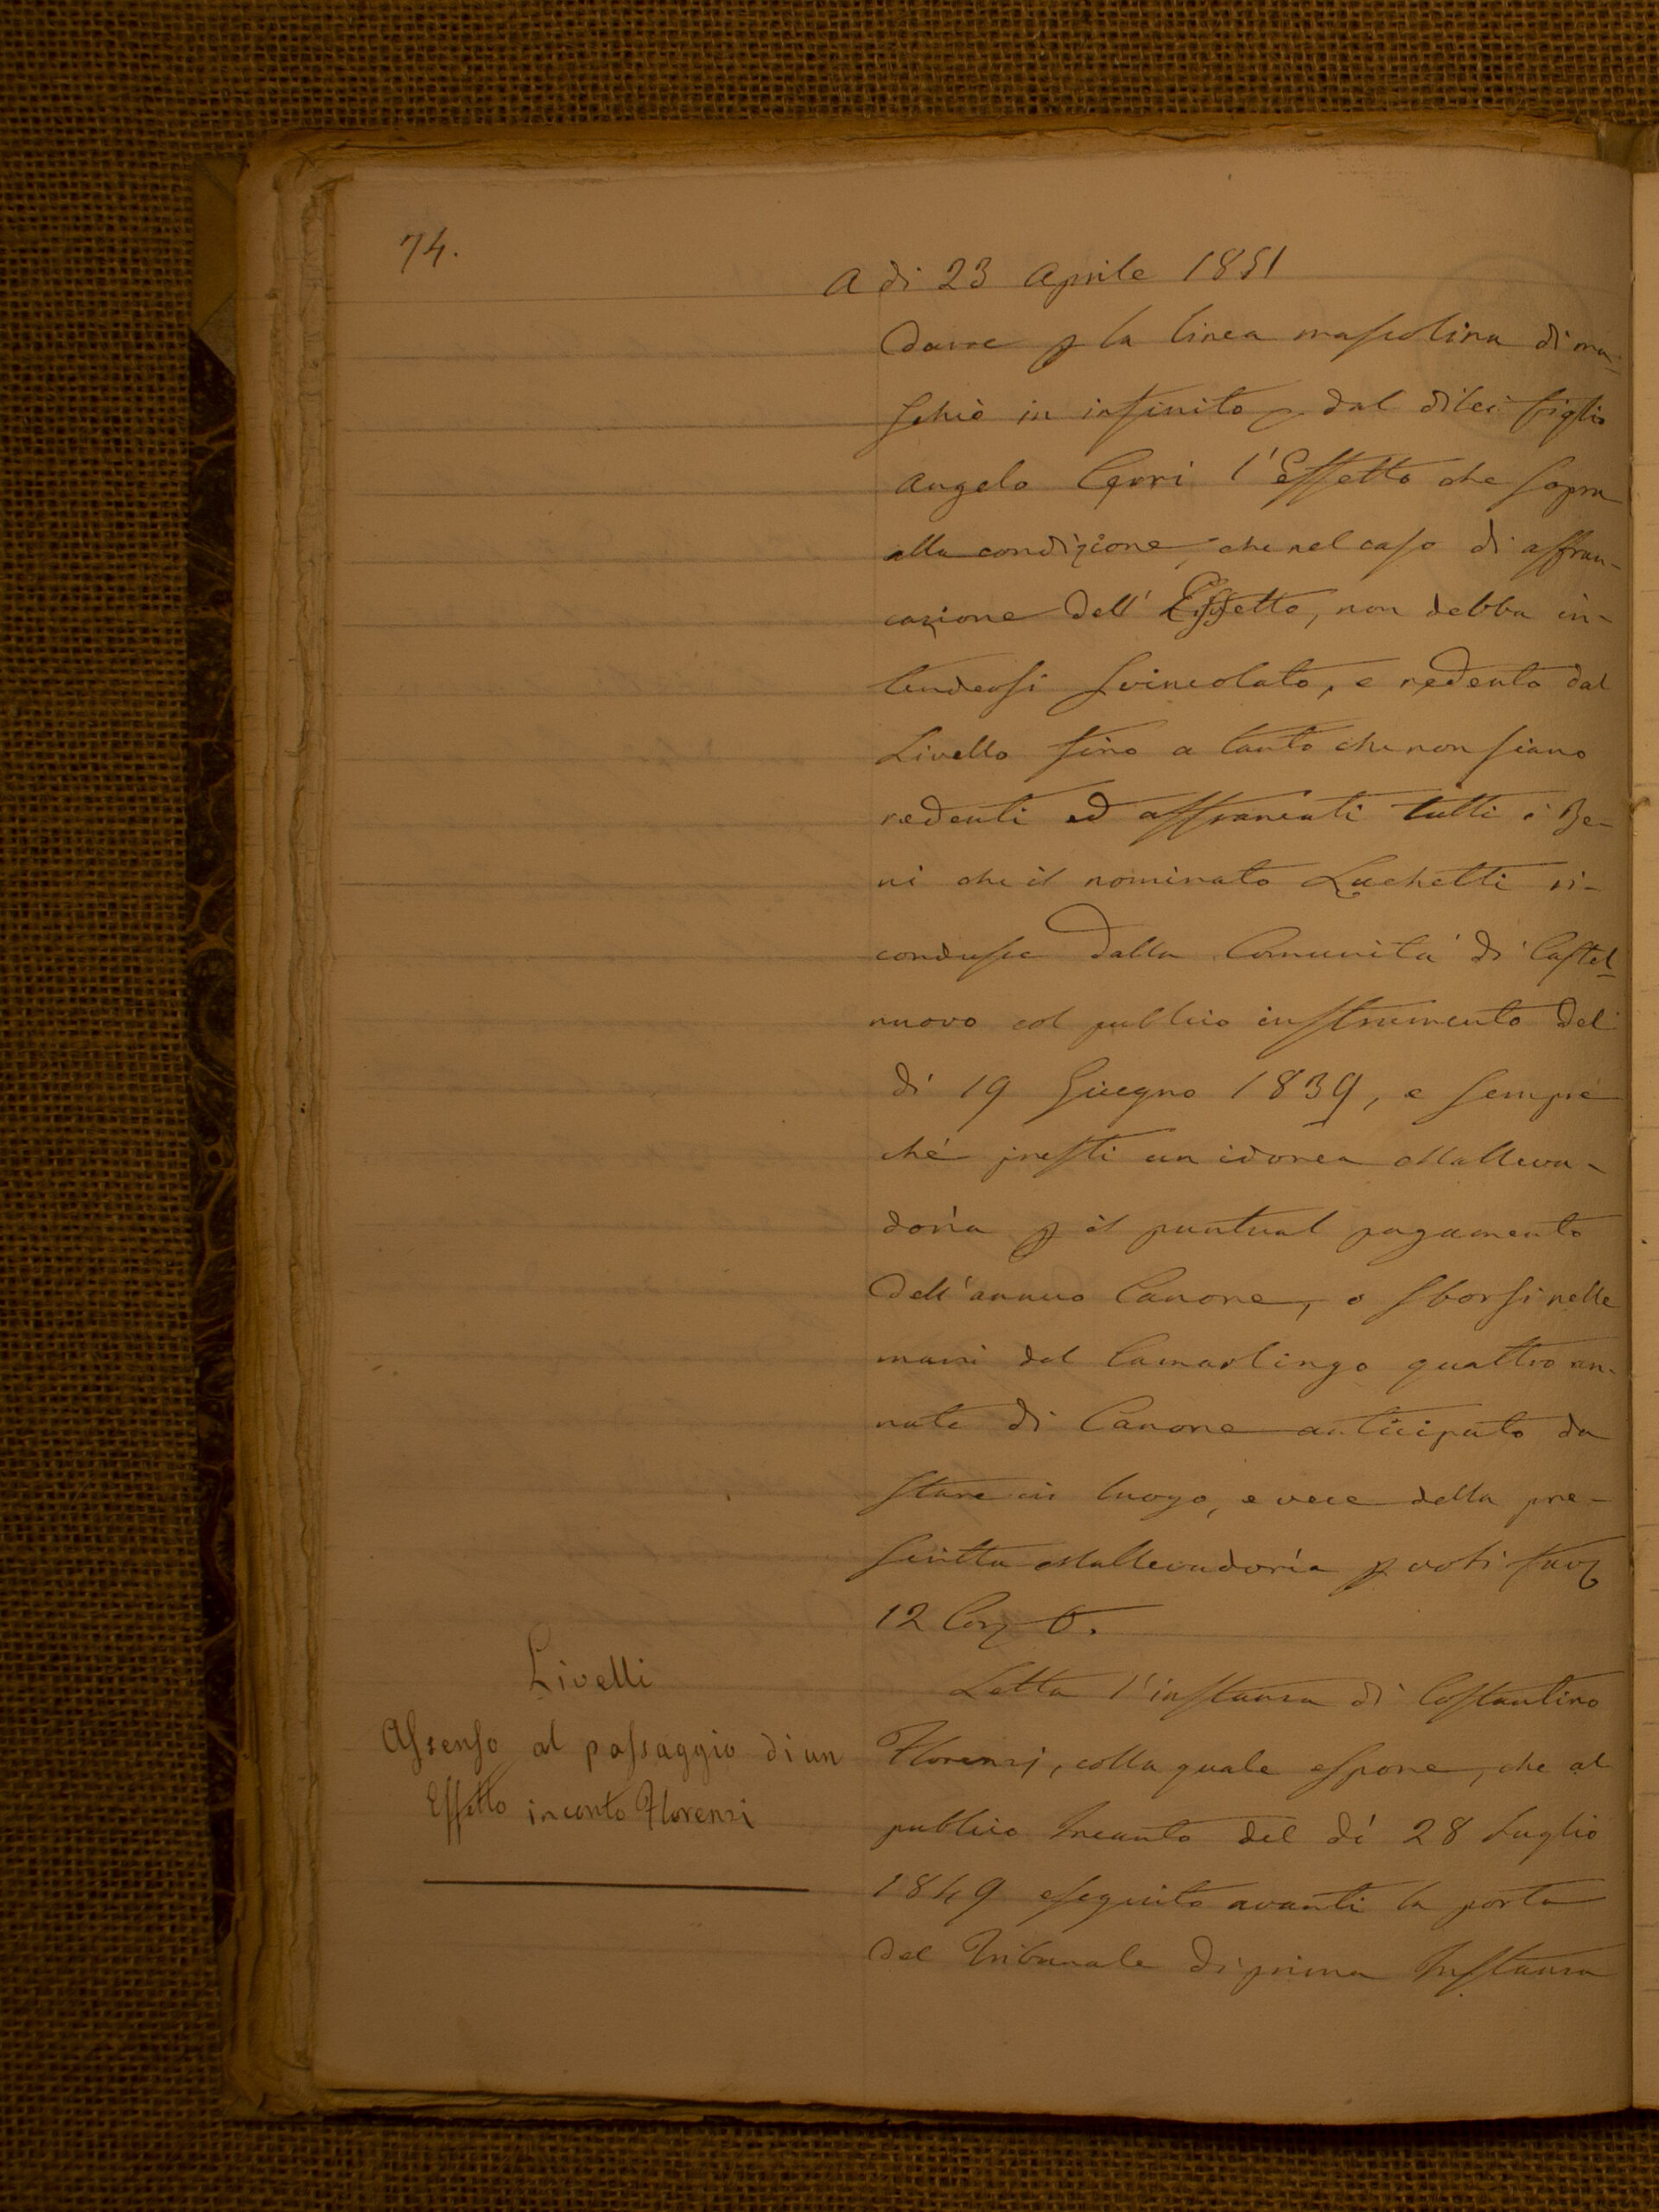 74.
A di 23 Aprile 1851
darre p la linea mascolina di ma-
schio in infinito, dal di lei figlio
Angelo Gori l'Effetto che sopra
alla condizione, che nel caso di affran-
cazione dell' Effetto, non debba in-
tendersi svincolato, e redento dal
Livello fino a tanto che non siano
redenti ed affrancati tutti i Be-
ni che il nominato Luchetti ri-
condusse dalla Comunità di Castel-
nuovo col publico instrumento del
dì 19 Giugno 1839, e sempre
chè presti un idonea Malleva-
doria p il puntual pagamento
dell'annuo Canone, o sborsi nelle
mani del Camarlingo quattro an-
nate di Canone anticipato da
stare in luogo, e vece della pre-
scritta Mallevadoria p voti favʒ
12 Conʒ 0.
Livelli
Assenso al passaggio di un
Effetto in conto Florenzi
Letta l'instanza di Costantino
Florenzj, colla quale espone, che al
publico Incanto del dì 28 Luglio
1849 eseguito avanti la porta
del Tribunale di prima Instanza